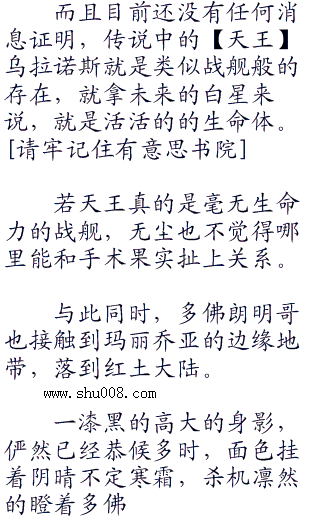 而且目前还没有任何消
息证明，传说中的【天王】
乌拉诺斯就是类似战舰般的
存在，就拿未来的白星来
说，就是活活的的生命体。
[请牢记住有意思书院]
若天王真的是毫无生命
力的战舰，无尘也不觉得哪
里能和手术果实扯上关系。
与此同时，多佛朗明哥
也接触到玛丽乔亚的边缘地
带，落到红土大陆。
www.shu008.com
一漆黑的高大的身影，
俨然已经恭候多时，面色挂
着阴晴不定寒霜，杀机凛然
的瞪着多佛